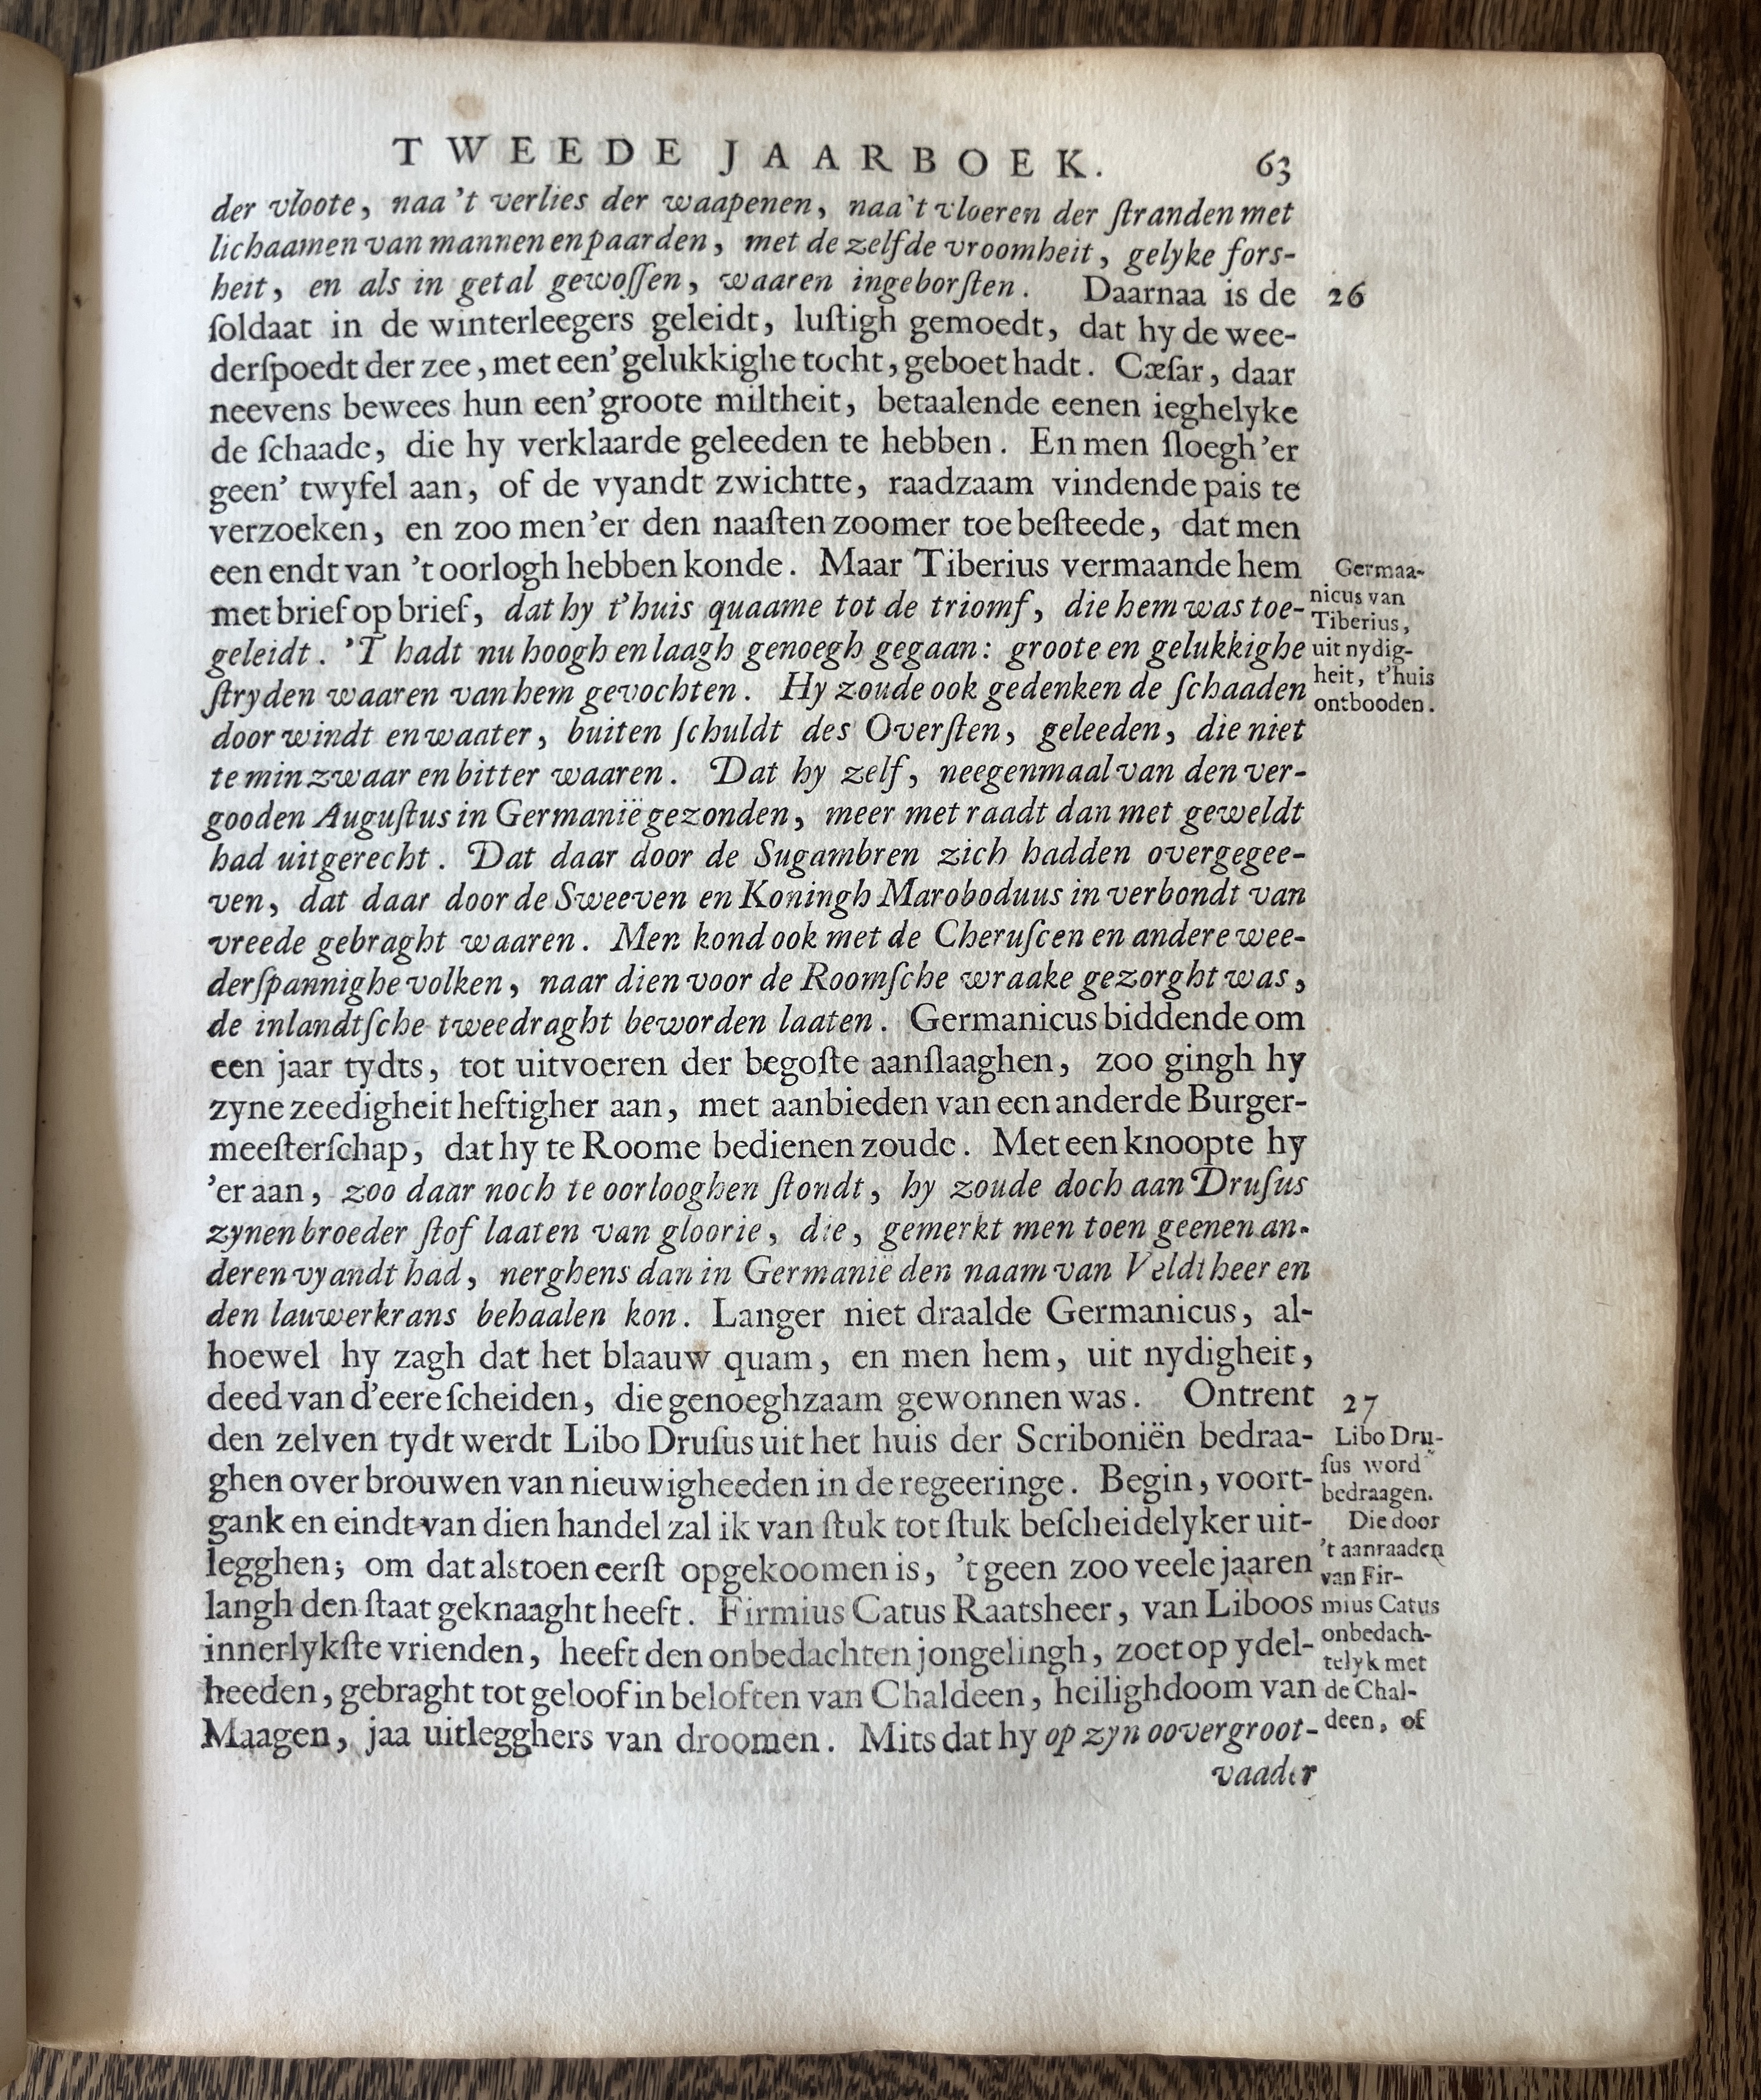 TWEEDE JAARBOEK. 63
der vloote, naa't verlies der waapenen, naa't vloeren der ſtranden met
lichaamen van mannen en paarden, met de zelfde vroomheit, gelyke fors-
heit, en als in getal gewoſſen, waaren ingeborſten. Daarnaa is de
26
ſoldaat in de winterleegers geleidt, luſtigh gemoedt, dat hy de wee-
derſpoedt der zee, met een' gelukkighe tocht, geboet hadt. Cæſar, daar
neevens bewees hun een' groote miltheit, betaalende eenen ieghelyke
de ſchaade, die hy verklaarde geleeden te hebben. En men ſloegh 'er
geen' twyfel aan, of de vyandt zwichtte, raadzaam vindende pais te
verzoeken, en zoo men 'er den naaſten zoomer toe beſteede, dat men
een endt van 't oorlogh hebben konde. Maar Tiberius vermaande hem
met brief op brief, dat hy t'huis quaame tot de triomf, die hem was toe-
geleidt. 'T hadt nu hoogh en laagh genoegh gegaan: groote en gelukkighe
ſtryden waaren van hem gevochten. Hy zoude ook gedenken de ſchaaden
door windt en waater, buiten ſchuldt des Overſten, geleeden, die niet
te min zwaar en bitter waaren. Dat hy zelf, neegenmaal van den ver-
gooden Auguſtus in Germanië gezonden, meer met raadt dan met geweldt
had uitgerecht. Dat daar door de Sugambren zich hadden overgegee-
ven, dat daar door de Sweeven en Koningh Maroboduus in verbondt van
vreede gebraght waaren. Men kond ook met de Cheruſcen en andere wee-
derſpannighe volken, naar dien voor de Roomſche wraake gezorght was,
de inlandtſche tweedraght beworden laaten. Germanicus biddende om
een jaar tydts, tot uitvoeren der begoſte aanſlaaghen, zoo gingh hy
zyne zeedigheit heftigher aan, met aanbieden van een anderde Burger-
meeſterſchap, dat hy te Roome bedienen zoude. Met een knoopte hy
'er aan, zoo daar noch te oorlooghen ſtondt, hy zoude doch aan Druſus
zynen broeder ſtof laaten van gloorie, die, gemerkt men toen geenen an-
deren vyandt had, nerghens dan in Germanië den naam van Veldtheer en
den lauwerkrans behaalen kon. Langer niet draalde Germanicus, al-
hoewel hy zagh dat het blaauw quam, en men hem, uit nydigheit,
deed van d'eere ſcheiden, die genoeghzaam gewonnen was. Ontrent
den zelven tydt werdt Libo Druſus uit het huis der Scriboniën bedraa-
ghen over brouwen van nieuwigheeden in de regeeringe. Begin, voort-
gank en eindt van dien handel zal ik van ſtuk tot ſtuk beſcheidelyker uit-
legghen; om dat alstoen eerſt opgekoomen is, 't geen zoo veele jaaren
langh den ſtaat geknaaght heeft. Firmius Catus Raatsheer, van Liboos
innerlykſte vrienden, heeft den onbedachten jongelingh, zoet op ydel-
heeden, gebraght tot geloof in beloften van Chaldeen, heilighdoom van
Maagen, jaa uitlegghers van droomen. Mits dat hy op zyn oovergroot-
vaader
Germaa-
nicus van
Tiberius,
uit nydig-
heit, t'huis
ontbooden.
27
Libo Dru-
ſus word
bedraagen.
Die door
't aanraaden
van Fir-
mius Catus
onbedach-
telyk met
de Chal-
deen, of